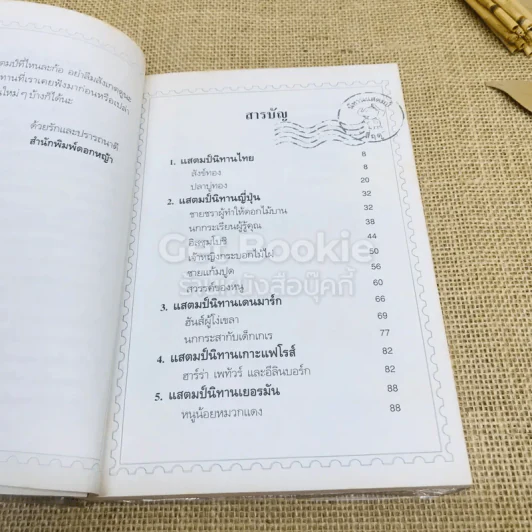 ตมป์ที่ไหนละก้อ อย่าลืมสังเกตดูนะ
ทานที่เราเคยฟังมาก่อนหรือเปล่า
นใหม่ๆ บ้างก็ได้นะ
ด้วยรักและปรารถนาดี
สำนักพิมพ์ดอกหญ้า
สารบัญ
นิทานแสตมป์
1. แสตมป์นิทานไทย 8
สังข์ทอง 8
ปลาบู่ทอง 20
2. แสตมป์นิทานญี่ปุ่น 32
ชายชราผู้ทำให้ดอกไม้บาน 32
นกกระเรียนผู้รู้คุณ 38
อิสซุมโบชิ 44
เจ้าหญิงกระบอกไม้ไผ่ 50
ชายแก้มปูด 56
สวรรค์ของหนู 60
3. แสตมป์นิทานเดนมาร์ก 66
ฮันส์ผู้โง่เขลา 69
นกกระสากับเด็กเกเร 77
4. แสตมป์นิทานเกาะแฟโรส์ 82
ฮาร์ร่า เพทัวร์ และอีลินบอร์ก 82
5. แสตมป์นิทานเยอรมัน 88
หนูน้อยหมวกแดง 88
Get Bookie
ร้านหนังสือบุ๊คกี้